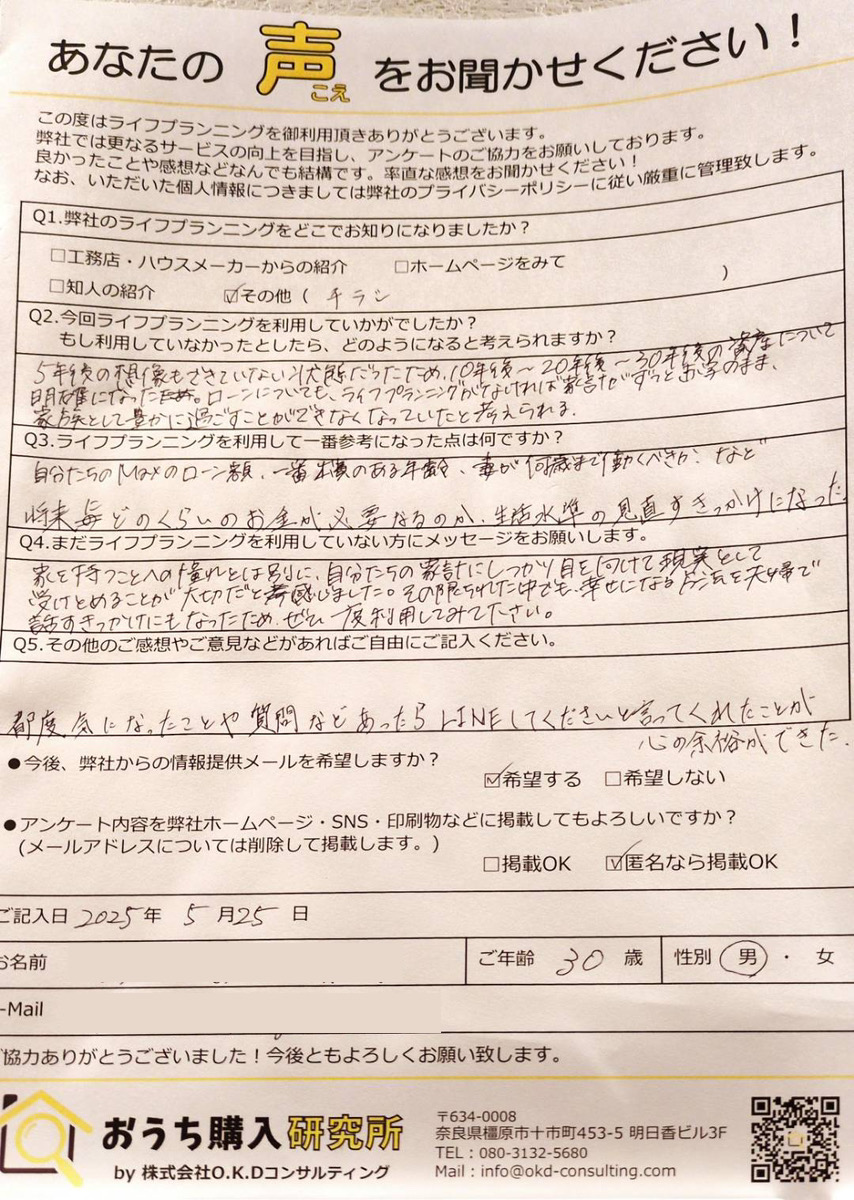 あなたの声をお聞かせください！
こえ
この度はライフプランニングを御利用頂きありがとうございます。
弊社では更なるサービスの向上を目指し、アンケートのご協力をお願いしております。
良かったことや感想などなんでも結構です。率直な感想をお聞かせください！
なお、いただいた個人情報につきましては弊社のプライバシーポリシーに従い厳重に管理致します。
Q1.弊社のライフプランニングをどこでお知りになりましたか？
□工務店・ハウスメーカーからの紹介 □ホームページをみて
□知人の紹介 ☑その他（ チラシ ）
Q2.今回ライフプランニングを利用していかがでしたか？
もし利用していなかったとしたら、どのようになると考えられますか？
5年後の想像もできていない状態だったため、10年後～20年後～30年後の資産について
明確になった。ローンについても、ライフプランニングがなければ家計がずっと赤字のまま、
家族として豊かに過ごすことができなくなっていたと考えられる。
Q3.ライフプランニングを利用して一番参考になった点は何ですか？
自分たちのMaxのローン額、一番余裕のある年齢、妻が何歳まで働くべきか、など
将来毎どのくらいのお金が必要なるのか、生活水準の見直すきっかけになった。
Q4.まだライフプランニングを利用していない方にメッセージをお願いします。
家を持つことへの憧れとは別に、自分たちの家計にしっかり目を向けて現実として
受けとめることが大切だと感じました。その限られた中でも、幸せになる方法を夫婦で
話すきっかけにもなったため、ぜひ一度利用してみて下さい。
Q5.その他のご感想やご意見などがあればご自由にご記入ください。
都度気になったことや質問などあったらLINEしてくださいと言ってくれたことが
心の余裕ができた。
●今後、弊社からの情報提供メールを希望しますか？
☑希望する □希望しない
●アンケート内容を弊社ホームページ・SNS・印刷物などに掲載してもよろしいですか？
(メールアドレスについては削除して掲載します。)
□掲載OK ☑匿名なら掲載OK
ご記入日 2025年 5月25日
お名前 ご年齢 30歳 性別 男・女
-Mail
協力ありがとうございました！今後ともよろしくお願い致します。
おうち購入研究所
by 株式会社O.K.Dコンサルティング
〒634-0008
奈良県橿原市十市町453-5 明日香ビル3F
TEL：080-3132-5680
Mail：info@okd-consulting.com